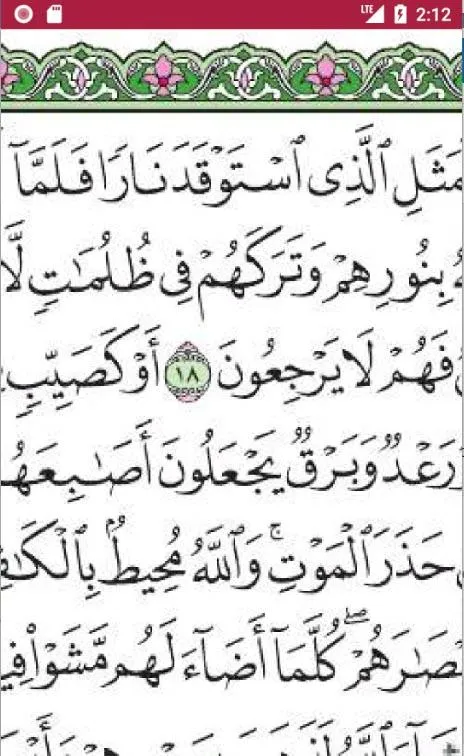 LTE 2:12
مَثَلِ ٱلَّذِى ٱسْتَوْقَدَ نَارًا فَلَمَّآ
بِنُورِهِمْ وَتَرَكَهُمْ فِى ظُلُمَٰتٍ لَّا
فَهُمْ لَا يَرْجِعُونَ ١٨ أَوْ كَصَيِّبٍ
رَعْدٌ وَبَرْقٌ يَجْعَلُونَ أَصَٰبِعَهُ
حَذَرَ ٱلْمَوْتِ ۚ وَٱللَّهُ مُحِيطٌۢ بِٱلْكَٰفِ
صَٰرَهُمْ ۖ كُلَّمَآ أَضَآءَ لَهُم مَّشَوْا۟ فِي